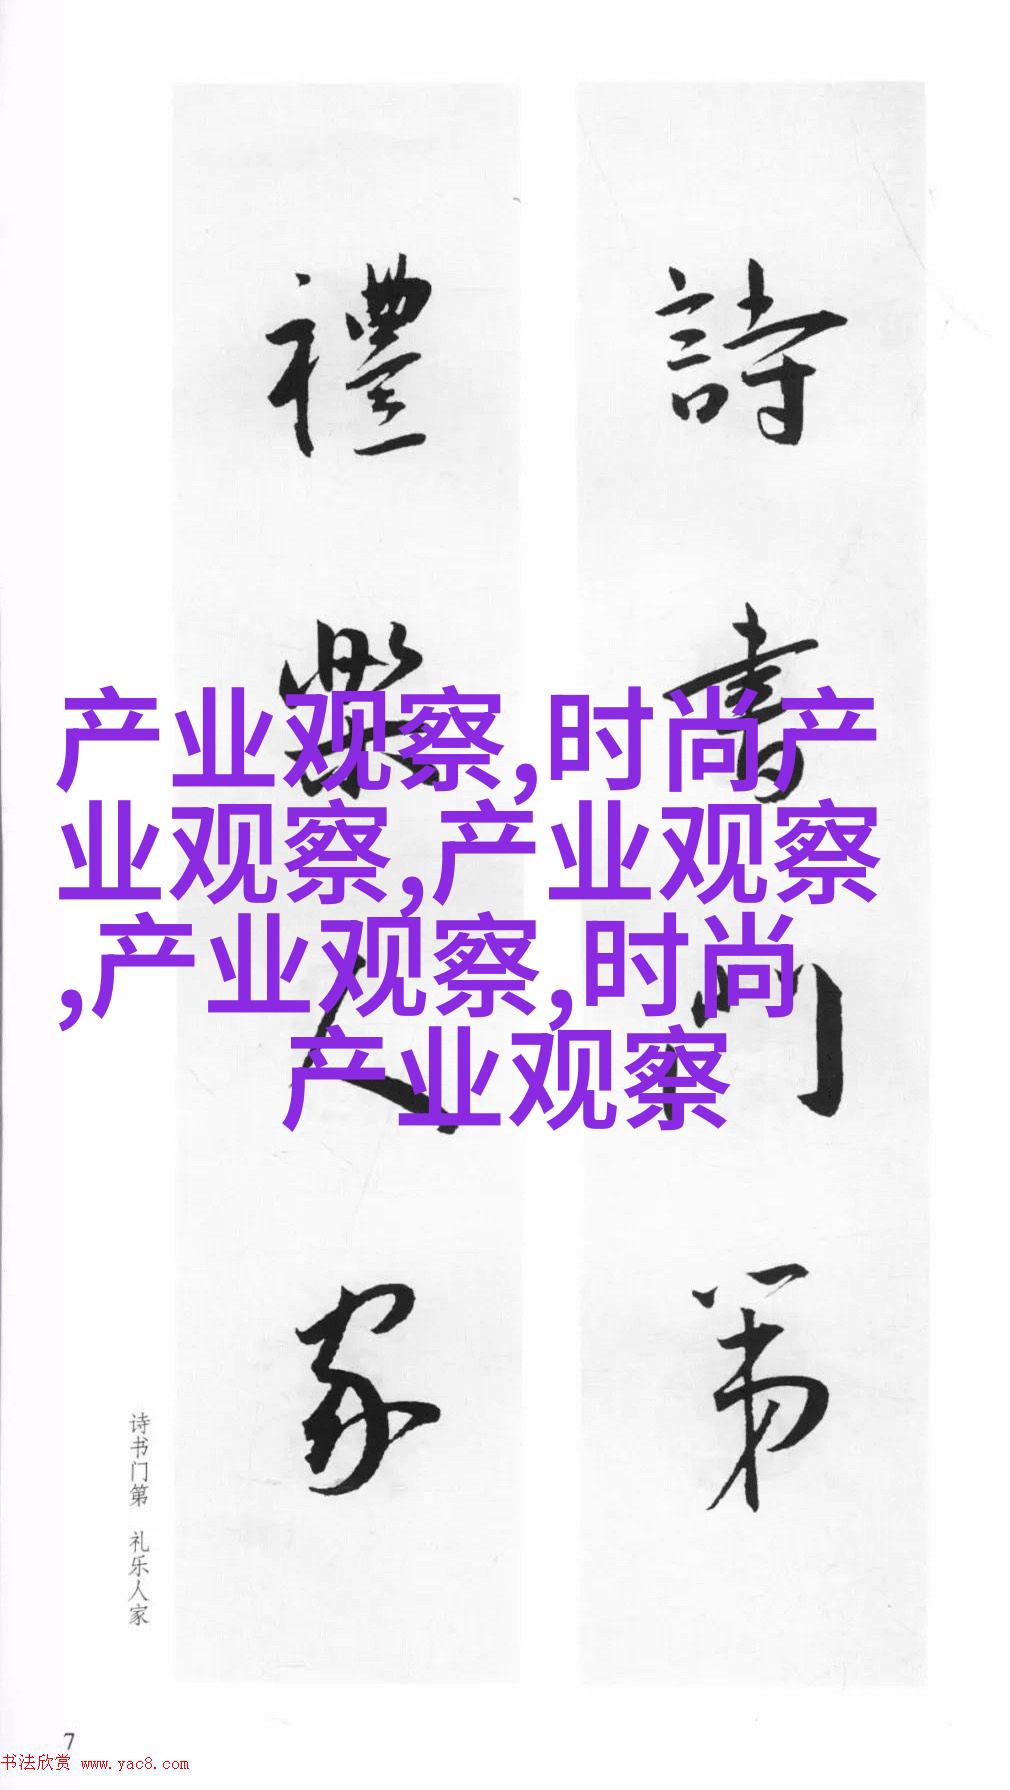 詩書門第
禮樂人家
产业观察,时尚产
业观察,产业观察
,产业观察,时尚
产业观察
诗书门第 礼乐人家
7
书法欣赏 www.yac8.com